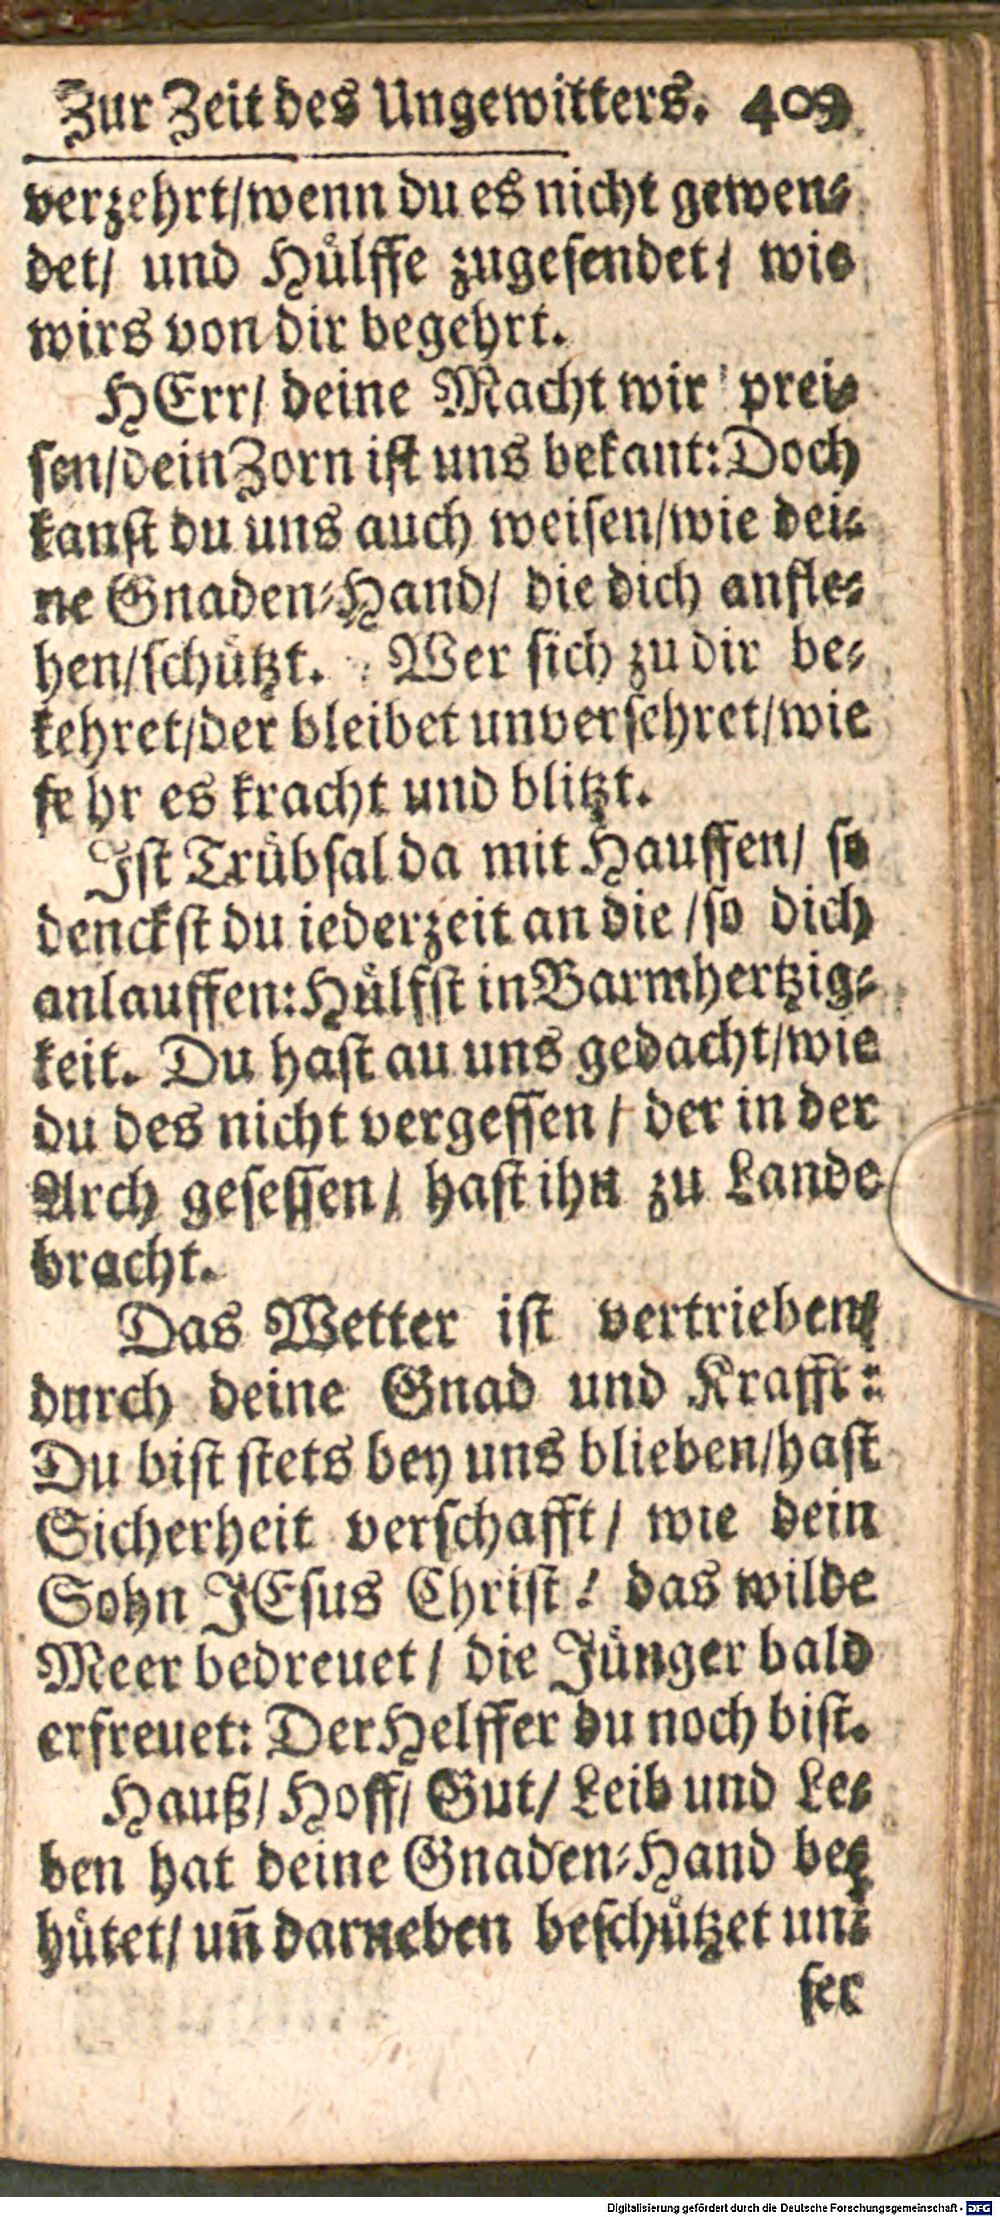 Zur Zeit des Ungewitters. 409
verzehrt/wenn du es nicht gewen⸗
det/ und Huͤlffe zugesendet/ wie
wirs von dir begehrt.
HErr/ deine Macht wir prei⸗
sen/dein Zorn ist uns bekant: Doch
kanst du uns auch weisen/wie dei⸗
ne Gnaden⸗Hand/ die dich anfle⸗
hen/schuͤtzt. Wer sich zu dir be⸗
kehret/der bleibet unversehret/wie
sehr es kracht und blitzt.
Ist Truͤbsal da mit Hauffen/ so
denckst du iederzeit an die /so dich
anlauffen: Huͤlfst in Barmhertzig⸗
keit. Du hast au uns gedacht/wie
du des nicht vergessen / der in der
Arch gesessen/ hast ihn zu Lande
bracht.
Das Wetter ist vertrieben/
durch deine Gnad und Krafft:
Du bist stets bey uns blieben/hast
Sicherheit verschafft/ wie dein
Sohn JEsus Christ/ das wilde
Meer bedreuet/ die Juͤnger bald
erfreuet: Der Helffer du noch bist.
Hauß/ Hoff/ Gut/ Leib und Le⸗
ben hat deine Gnaden⸗Hand be⸗
huͤtet/ un̄ darneben beschuͤtzet un⸗
ser
Digitalisierung gefördert durch die Deutsche Forschungsgemeinschaft - DFG